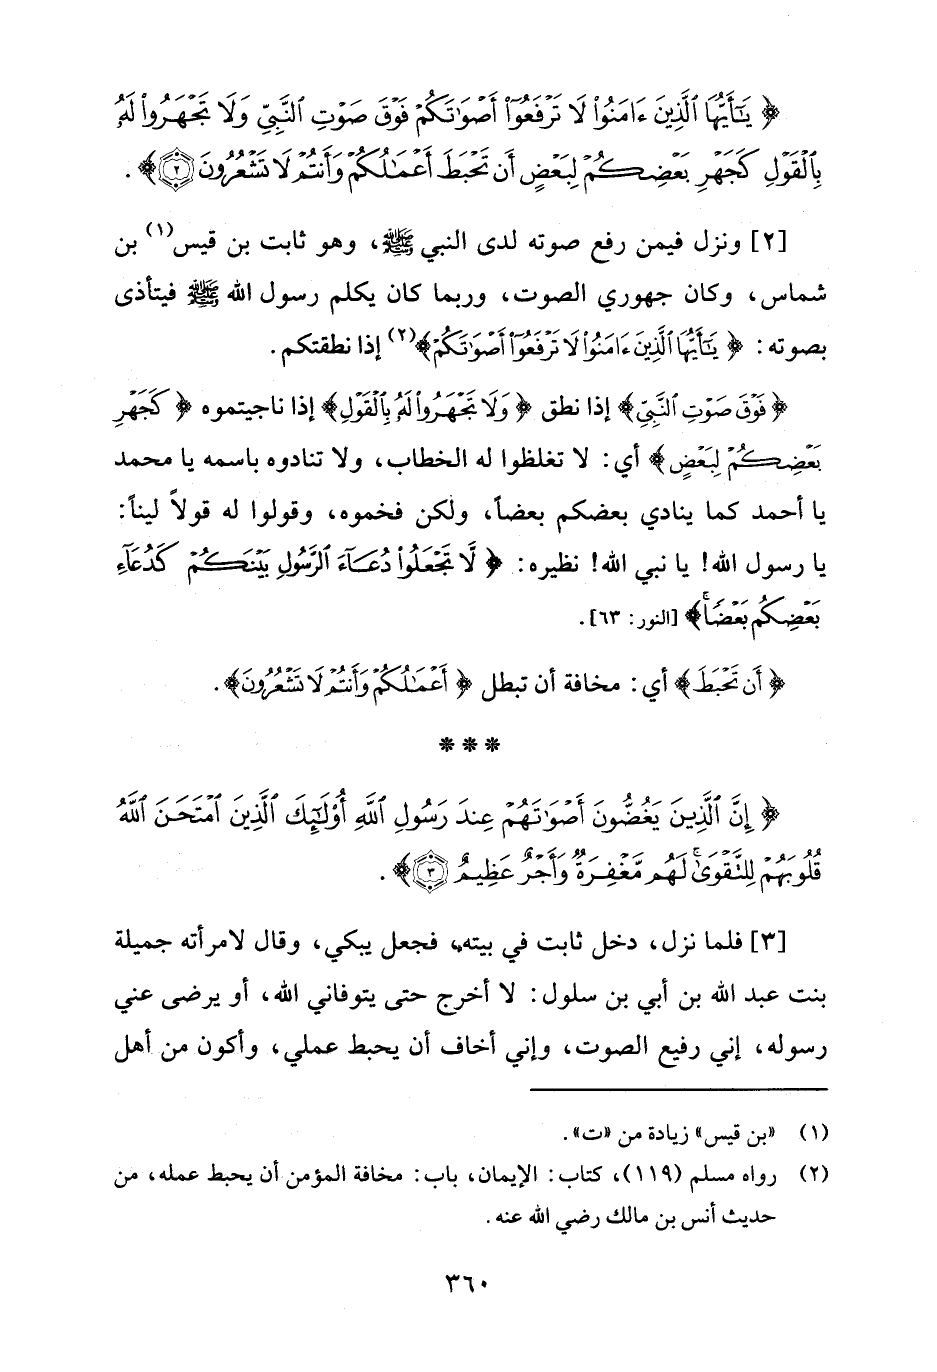 ﴿ يَٰٓأَيُّهَا ٱلَّذِينَ ءَامَنُوا۟ لَا تَرْفَعُوٓا۟ أَصْوَٰتَكُمْ فَوْقَ صَوْتِ ٱلنَّبِىِّ وَلَا تَجْهَرُوا۟ لَهُۥ
بِٱلْقَوْلِ كَجَهْرِ بَعْضِكُمْ لِبَعْضٍ أَن تَحْبَطَ أَعْمَٰلُكُمْ وَأَنتُمْ لَا تَشْعُرُونَ ٢﴾ .
[٢] ونزل فيمن رفع صوته لدى النبي ﷺ، وهو ثابت بن قيس(١) بن
شماس، وكان جهوري الصوت، وربما كان يكلم رسول الله ﷺ فيتأذى
بصوته: ﴿ يَٰٓأَيُّهَا ٱلَّذِينَ ءَامَنُوا۟ لَا تَرْفَعُوٓا۟ أَصْوَٰتَكُمْ﴾(٢) إذا نطقتكم.
﴿فَوْقَ صَوْتِ ٱلنَّبِىِّ﴾ إذا نطق ﴿ وَلَا تَجْهَرُوا۟ لَهُۥ بِٱلْقَوْلِ﴾ إذا ناجيتموه ﴿ كَجَهْرِ
بَعْضِكُمْ لِبَعْضٍ ﴾ أي: لا تغلظوا له الخطاب، ولا تنادوه باسمه يا محمد
يا أحمد كما ينادي بعضكم بعضاً، ولكن فخموه، وقولوا له قولاً ليناً:
يا رسول الله! يا نبي الله! نظيره: ﴿ لَّا تَجْعَلُوا۟ دُعَآءَ ٱلرَّسُولِ بَيْنَكُمْ كَدُعَآءِ
بَعْضِكُم بَعْضًا ۚ﴾ [النور: ٦٣].
﴿أَن تَحْبَطَ ﴾ أي: مخافة أن تبطل ﴿ أَعْمَٰلُكُمْ وَأَنتُمْ لَا تَشْعُرُونَ﴾.
***
﴿ إِنَّ ٱلَّذِينَ يَغُضُّونَ أَصْوَٰتَهُمْ عِندَ رَسُولِ ٱللَّهِ أُو۟لَٰٓئِكَ ٱلَّذِينَ ٱمْتَحَنَ ٱللَّهُ
قُلُوبَهُمْ لِلتَّقْوَىٰ ۚ لَهُم مَّغْفِرَةٌ وَأَجْرٌ عَظِيمٌ ٣﴾ .
[٣] فلما نزل، دخل ثابت في بيته، فجعل يبكي، وقال لامرأته جميلة
بنت عبد الله بن أبي بن سلول: لا أخرج حتى يتوفاني الله، أو يرضى عني
رسوله، إني رفيع الصوت، وإني أخاف أن يحبط عملي، وأكون من أهل
(١) «بن قيس» زيادة من «ت».
(٢) رواه مسلم (١١٩)، كتاب: الإيمان، باب: مخافة المؤمن أن يحبط عمله، من
حديث أنس بن مالك رضي الله عنه.
٣٦٠